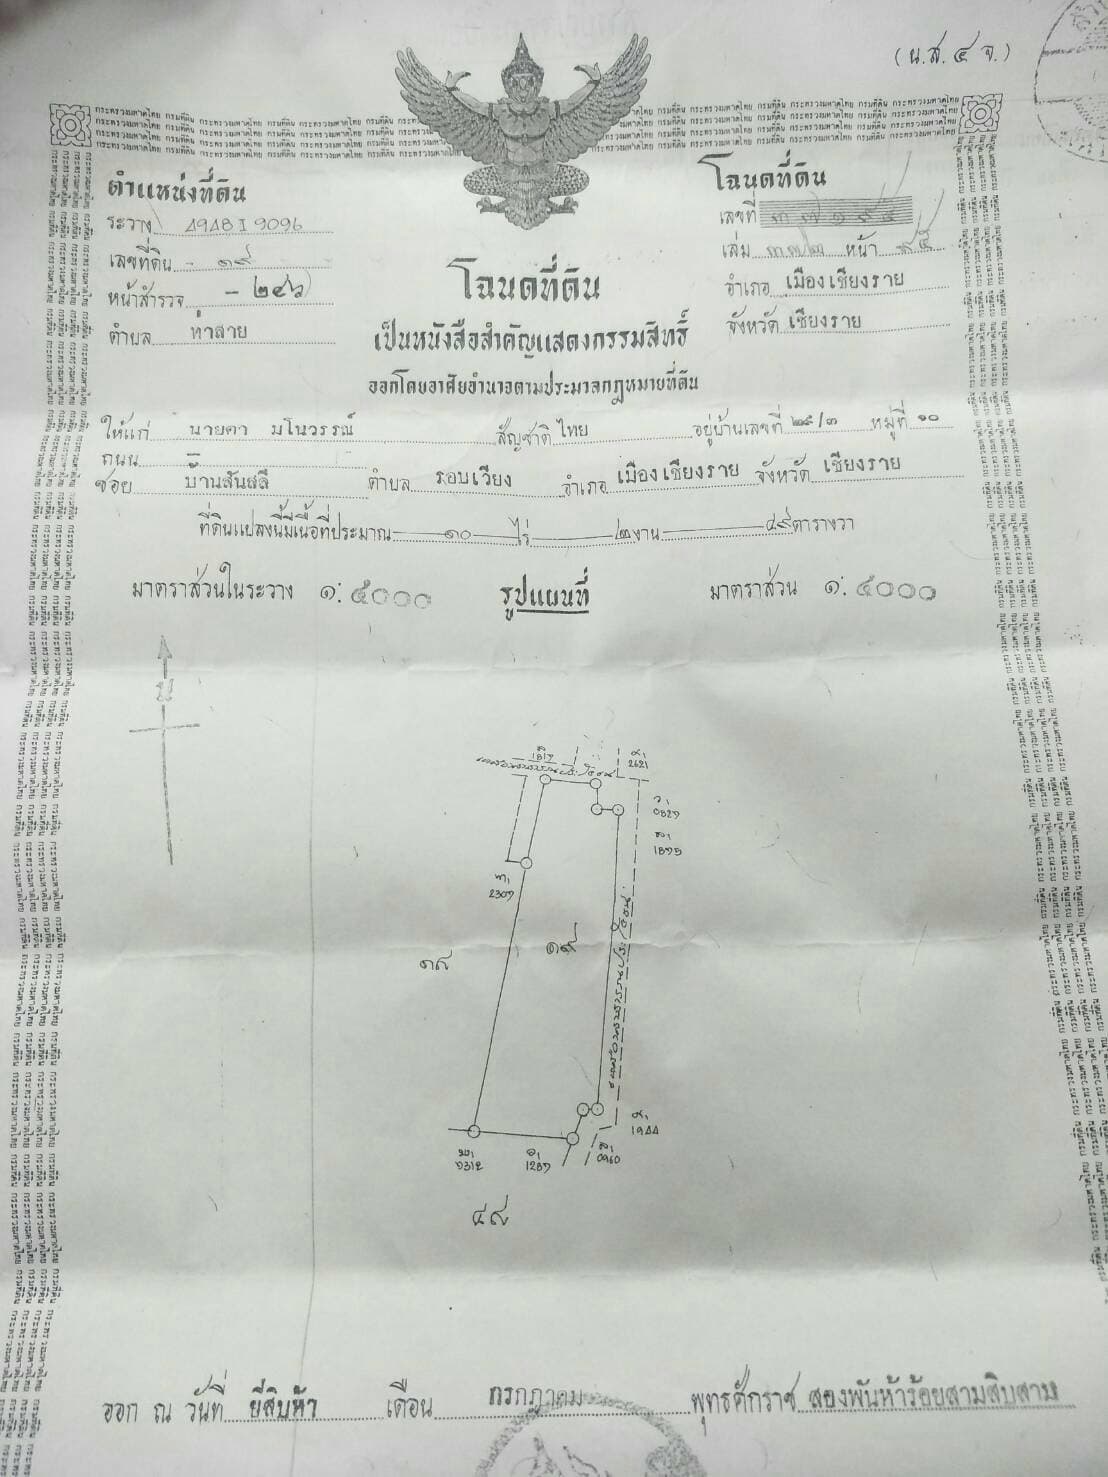 (น.ส.๔ จ.)
ตำแหน่งที่ดิน
ระวาง 4948 I 9096
เลขที่ดิน - ๑๙
หน้าสำรวจ - ๒๔๖
ตำบล ท่าสาย
โฉนดที่ดิน
เลขที่ ๓๗๑๙๕
เล่ม ๓๗๒ หน้า ๙๕
อำเภอ เมืองเชียงราย
จังหวัด เชียงราย
โฉนดที่ดิน
เป็นหนังสือสำคัญแสดงกรรมสิทธิ์
ออกโดยอาศัยอำนาจตามประมวลกฎหมายที่ดิน
ให้แก่ นายคา มโนวรรณ์ สัญชาติ ไทย อยู่บ้านเลขที่ ๒๙/๓ หมู่ที่ ๑๐
ถนน -
ซอย บ้านสันสลี ตำบล รอบเวียง อำเภอ เมืองเชียงราย จังหวัด เชียงราย
ที่ดินแปลงนี้มีเนื้อที่ประมาณ ๑๐ ไร่ ๒ งาน ๔๙ ตารางวา
มาตราส่วนในระวาง ๑:๕๐๐๐ รูปแผนที่ มาตราส่วน ๑:๕๐๐๐
น
๑๙
๑๘
๔๙
ออก ณ วันที่ ยี่สิบห้า เดือน กรกฎาคม พุทธศักราช สองพันห้าร้อยสามสิบสาม
กระทรวงมหาดไทย กรมที่ดิน